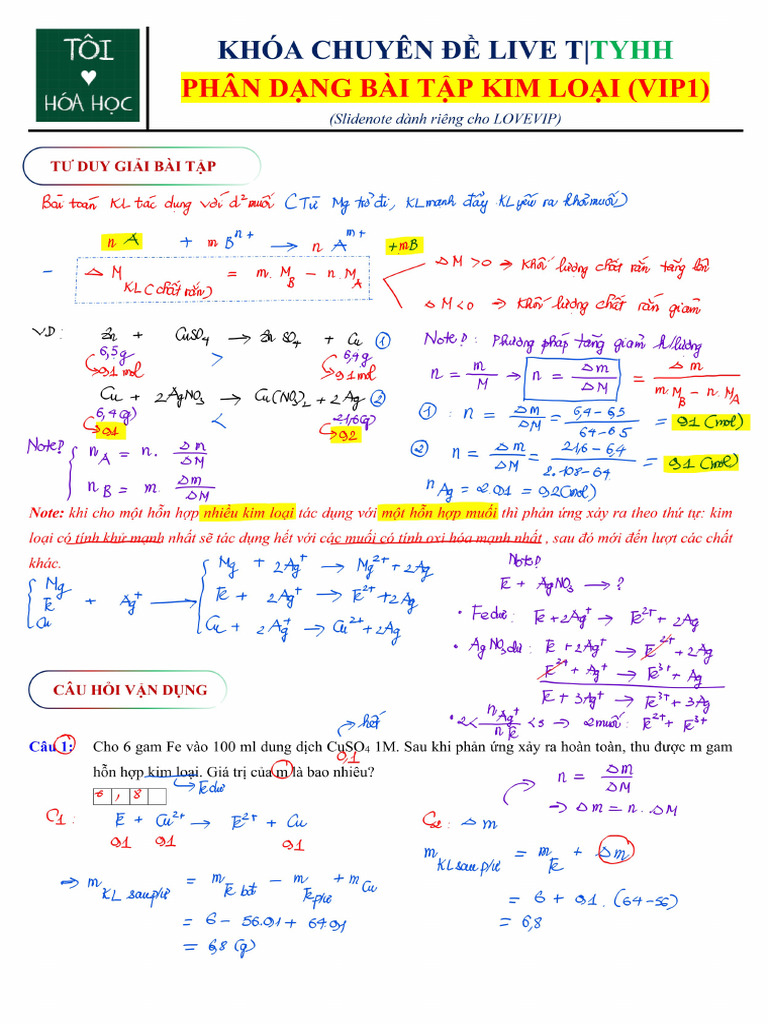 TÔI
♥
HÓA HỌC
KHÓA CHUYÊN ĐỀ LIVE T|TYHH
PHÂN DẠNG BÀI TẬP KIM LOẠI (VIP1)
(Slidenote dành riêng cho LOVEVIP)
TƯ DUY GIẢI BÀI TẬP
Bài toán KL tác dụng với d² muối (Từ Mg trở đi, KL mạnh đẩy KL yếu ra khỏi muối)
n A + m Bⁿ⁺ → n Aᵐ⁺ + mB
- ΔM KL(chất rắn) = m.M_B - n.M_A
ΔM > 0 → Khối lượng chất rắn tăng lên
ΔM < 0 → Khối lượng chất rắn giảm
VD: Zn + CuSO₄ → ZnSO₄ + Cu ①
6,5g > 6,4g
0,1 mol 0,1 mol
Cu + 2AgNO₃ → Cu(NO₃)₂ + 2Ag ②
6,4(g) < 21,6(g)
0,1 0,2
Note!: Phương pháp tăng giảm k/lượng
n = m/M → n = Δm/ΔM = Δm/(m.M_B - n.M_A)
①: n = Δm/ΔM = (6,4-6,5)/(64-65) = 0,1 (mol)
② n = Δm/ΔM = (21,6-6,4)/(2.108-64) = 0,1 (mol)
n Ag = 2.0,1 = 0,2 (mol)
Note!
n_A = n. Δm/ΔM
n_B = m. Δm/ΔM
Note: khi cho một hỗn hợp nhiều kim loại tác dụng với một hỗn hợp muối thì phản ứng xảy ra theo thứ tự: kim
loại có tính khử mạnh nhất sẽ tác dụng hết với các muối có tính oxi hóa mạnh nhất , sau đó mới đến lượt các chất
khác.
Mg
Fe + Ag⁺ →
Cu
Mg + 2Ag⁺ → Mg²⁺ + 2Ag
Fe + 2Ag⁺ → Fe²⁺ + 2Ag
Cu + 2Ag⁺ → Cu²⁺ + 2Ag
Note!
Fe + AgNO₃ → ?
• Fe dư: Fe + 2Ag⁺ → Fe²⁺ + 2Ag
• AgNO₃ dư: Fe + 2Ag⁺ → Fe²⁺ + 2Ag
Fe²⁺ + Ag⁺ → Fe³⁺ + Ag
Fe + 3Ag⁺ → Fe³⁺ + 3Ag
• 2 < n Ag⁺/n Fe < 3 → 2 muối: Fe²⁺ + Fe³⁺
CÂU HỎI VẬN DỤNG
hết
Câu 1: Cho 6 gam Fe vào 100 ml dung dịch CuSO₄ 1M. Sau khi phản ứng xảy ra hoàn toàn, thu được m gam
0,1
hỗn hợp kim loại. Giá trị của m là bao nhiêu?
Fe dư
6 , 8
n = Δm/ΔM
→ Δm = n.ΔM
C1: Fe + Cu²⁺ → Fe²⁺ + Cu
0,1 0,1 0,1
→ m KL sau p/ư = m Fe bđ - m Fe p/ư + m Cu
= 6 - 56.0,1 + 64.0,1
= 6,8 (g)
C2: Δm
m KL sau p/ư = m Fe + Δm
= 6 + 0,1.(64-56)
= 6,8